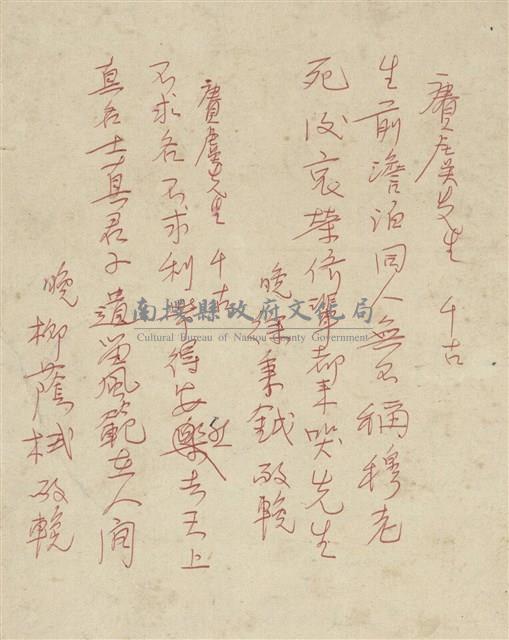 賡虞先生 千古
生前澹泊同人無不稱穆老
死後哀榮儕輩都來哭先生
晚 秉鉞敬輓
賡虞先生 千古
不求名不求利 得安樂去天上
真名士真君子遺留風範在人间
晚 柳蔭棫敬輓
南投縣政府文化局
Cultural Bureau of Nantou County Government